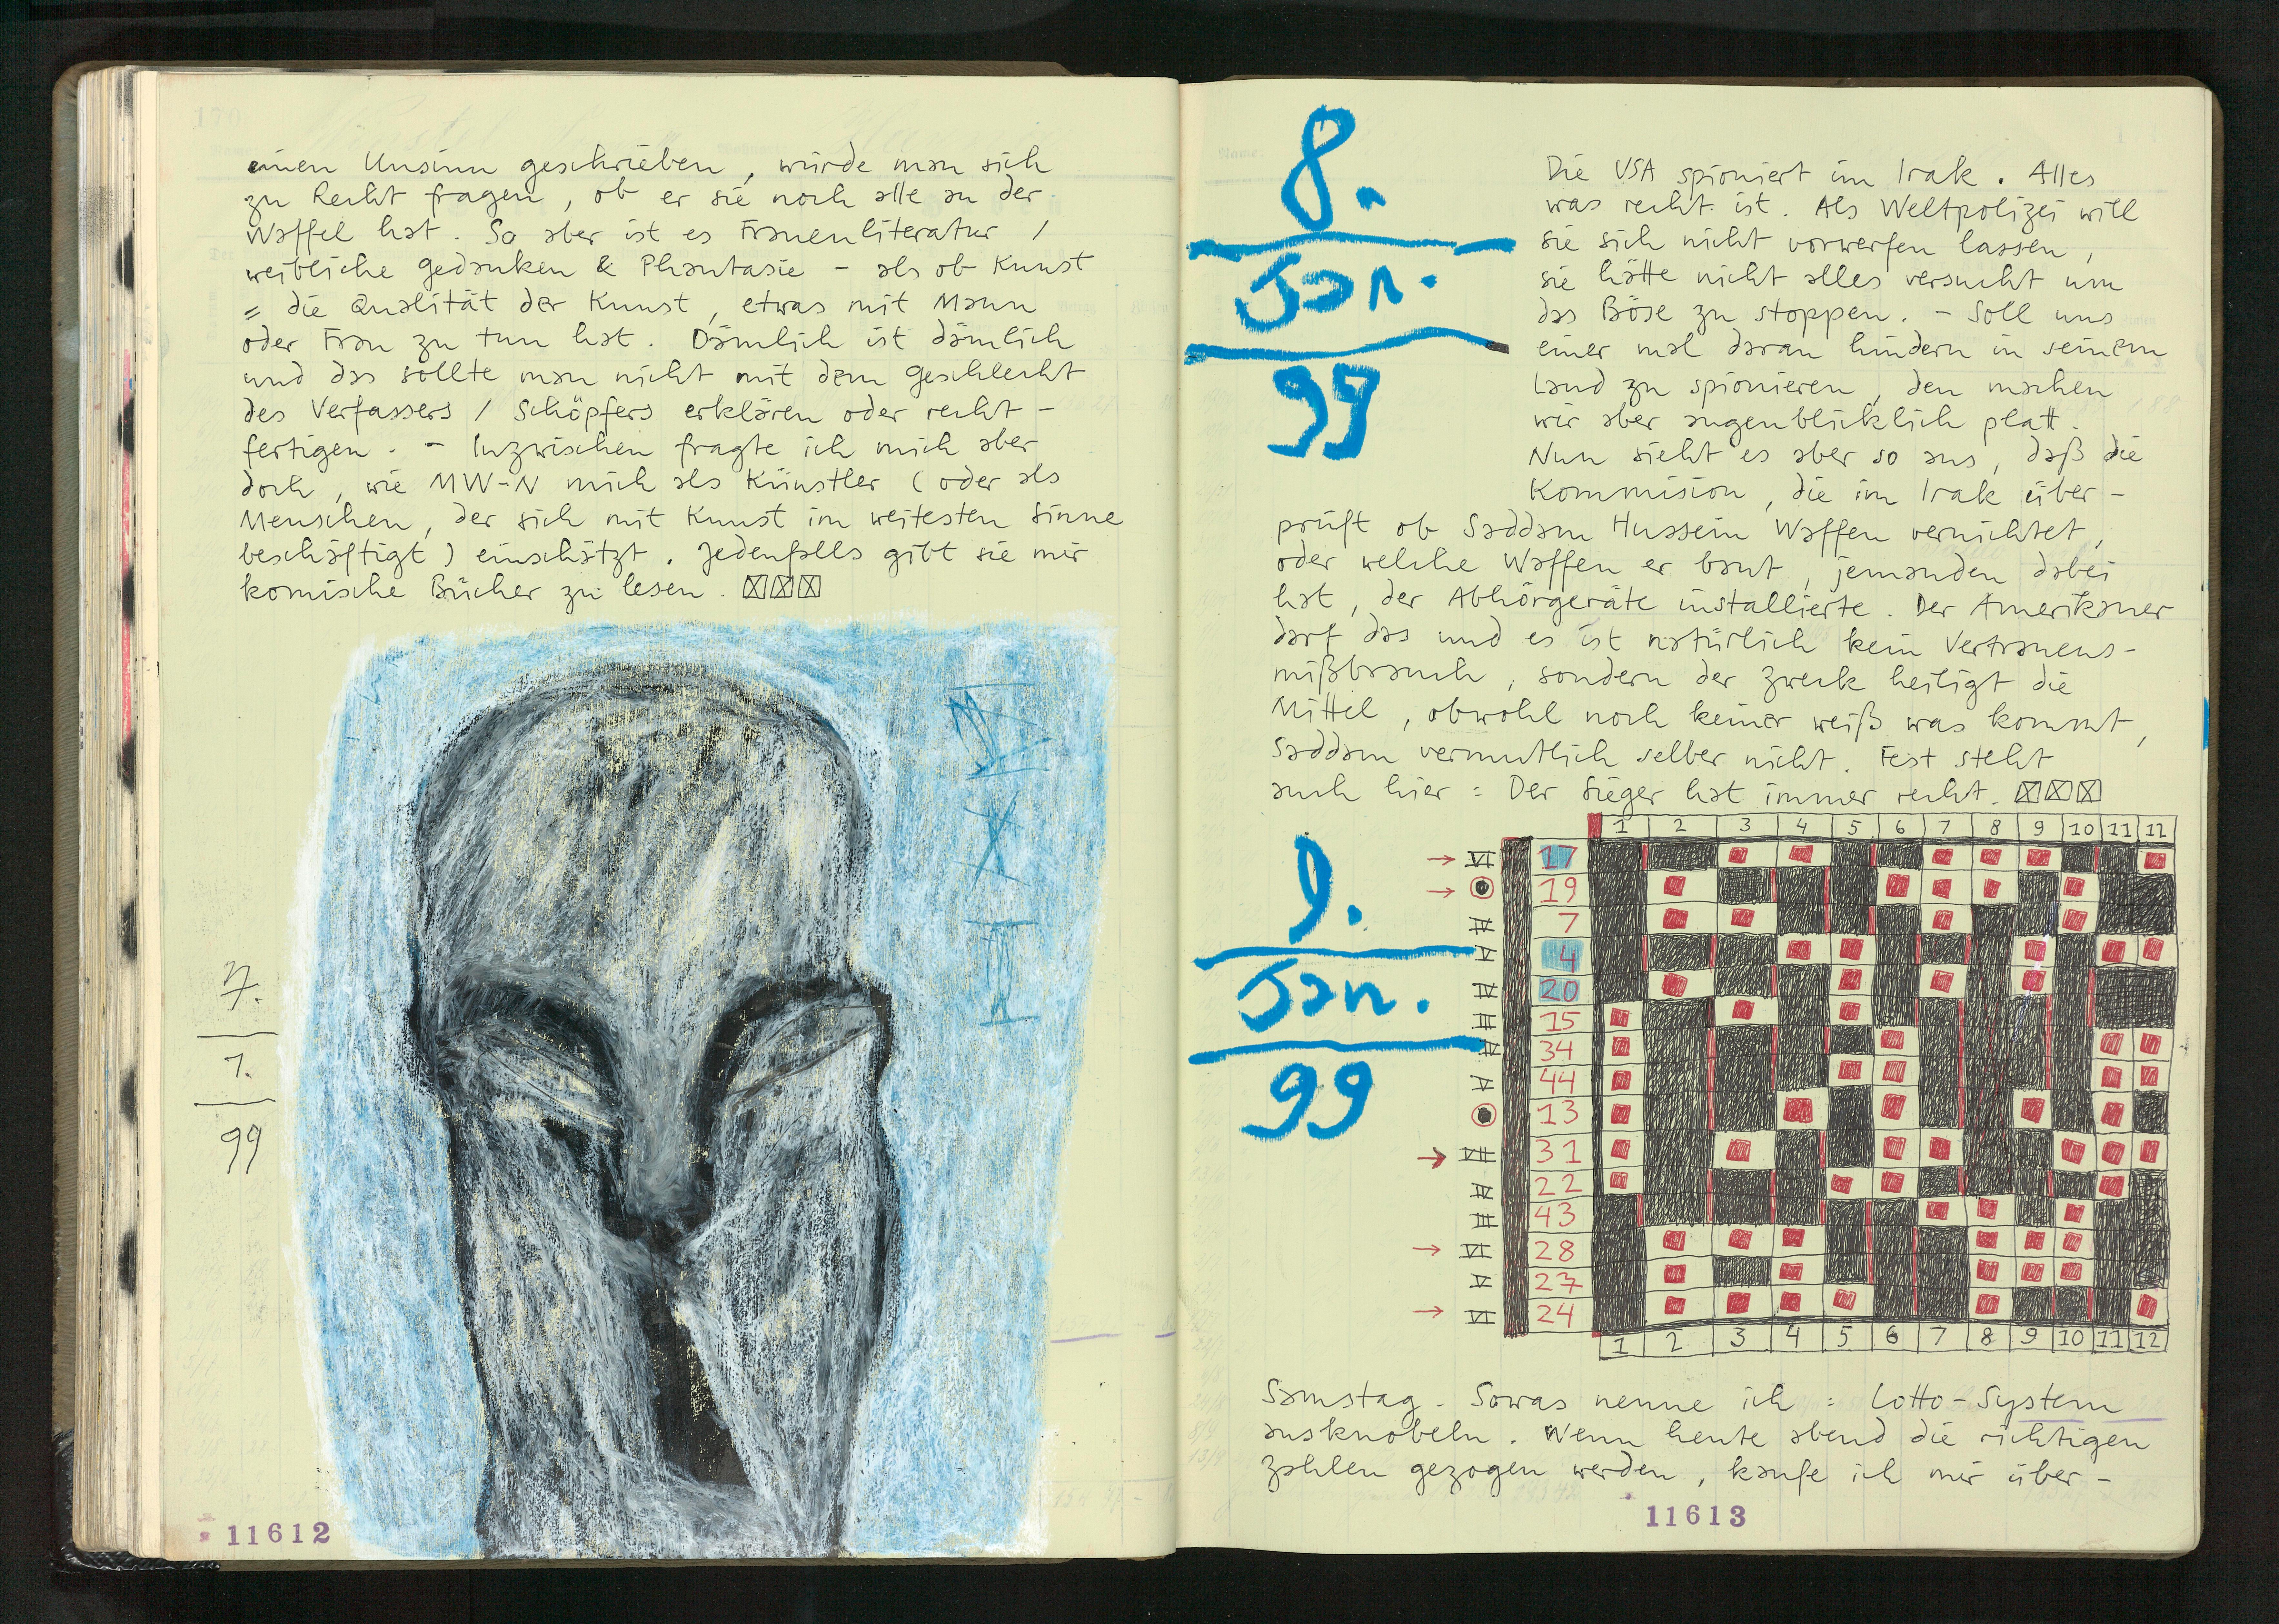 170
einen Unsinn geschrieben, würde man sich
zu Recht fragen, ob er sie noch alle an der
Waffel hat. So aber ist es Frauenliteratur /
weibliche Gedanken & Phantasie – als ob Kunst
= die Qualität der Kunst, etwas mit Mann
oder Frau zu tun hat. Dämlich ist dämlich
und das sollte man nicht mit dem Geschlecht
des Verfassers / Schöpfers erklären oder recht-
fertigen. – Inzwischen fragte ich mich aber
doch, wie MW-N mich als Künstler (oder als
Menschen, der sich mit Kunst im weitesten Sinne
beschäftigt) einschätzt. Jedenfalls gibt sie mir
komische Bücher zu lesen.
7.
1.
99
11612
8.
Jan.
99
Die USA spioniert im Irak. Alles
was recht ist. Als Weltpolizei will
sie sich nicht vorwerfen lassen,
sie hätte nicht alles versucht um
das Böse zu stoppen. – Soll uns
einer mal daran hindern in seinem
Land zu spionieren, den machen
wir aber augenblicklich platt.
Nun sieht es aber so aus, daß die
Kommision, die im Irak über-
prüft ob Saddam Hussein Waffen vernichtet,
oder welche Waffen er baut, jemanden dabei
hat, der Abhörgeräte installierte. Der Amerikaner
darf das und es ist natürlich kein Vertrauens-
mißbrauch, sondern der Zweck heiligt die
Mittel, obwohl noch keiner weiß was kommt,
Saddam vermutlich selber nicht. Fest steht
auch hier: Der Sieger hat immer recht.
9.
Jan.
99
1 2 3 4 5 6 7 8 9 10 11 12
17
19
7
4
20
15
34
44
13
31
22
43
28
27
24
1 2 3 4 5 6 7 8 9 10 11 12
Samstag. Sowas nenne ich: Lotto-System
ausknobeln. Wenn heute abend die richtigen
Zahlen gezogen werden, kaufe ich mir über-
11613